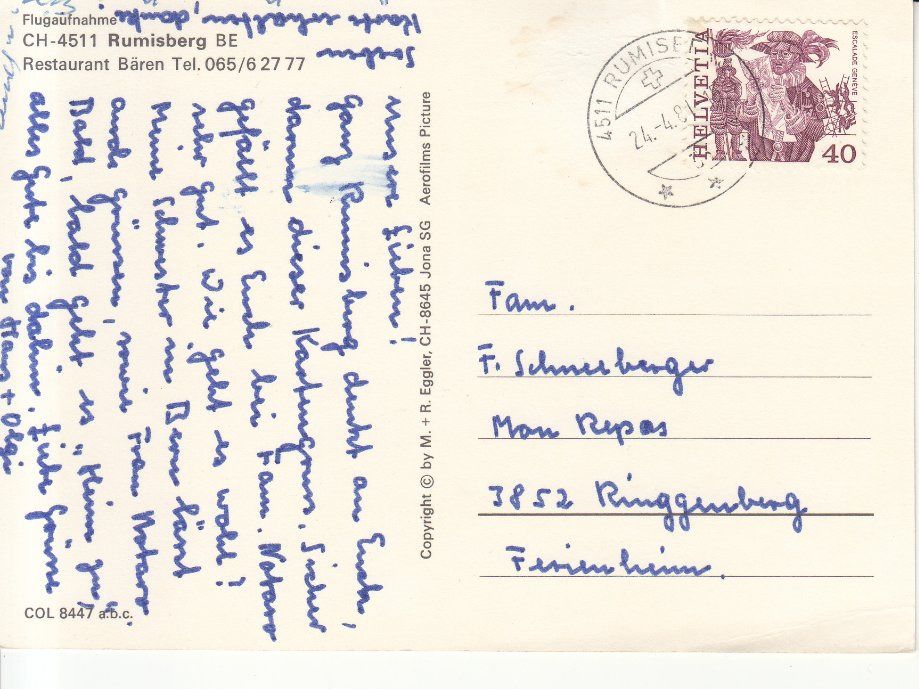 Flugaufnahme
CH-4511 Rumisberg BE
Restaurant Bären Tel. 065/6 27 77
Unsere Lieben!
Ganz Rumisberg denkt an Euch,
darum dieser Kartengruss. Sicher
gefällt es Euch bei Fam. Notaro
sehr gut. Wie geht es wohl?
Meine Schwester in Bern lässt
auch grüssen, sowie Frau Notaro
Bald, bald geht es "Heim zu",
alles Gute bis dahin. Liebe Grüsse
von Hans + Olgi
Soeben
Karte erhalten, danke
Copyright © by M. + R. Eggler, CH-8645 Jona SG Aerofilms Picture
COL 8447 a.b.c.
4511 RUMISBE
24.-4.8
HELVETIA
ESCALADE GENEVE
40
Fam.
F. Schneeberger
Mon Repos
3852 Ringgenberg
Ferienheim.